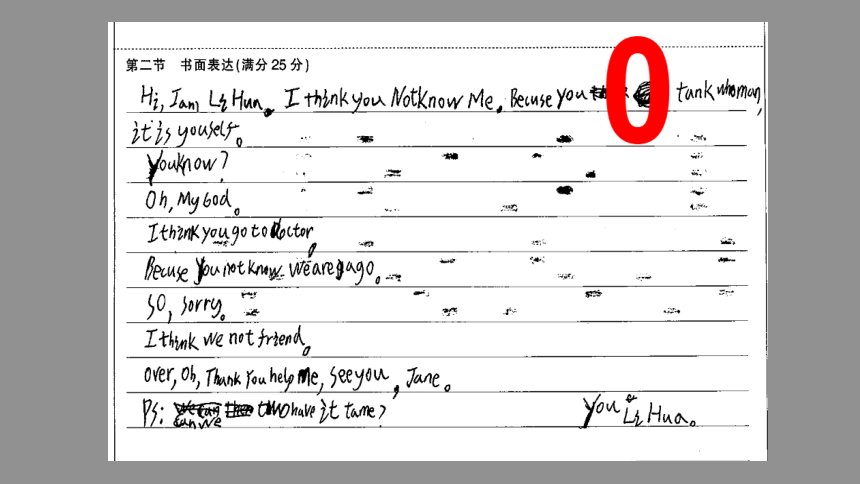 第二节 书面表达(满分 25 分)
0
Hi, I am Li Hua. I think you Not Know Me. Becuse you tank whoman,
it is youself.
You know?
Oh, My God.
I think you go to doctor,
Becuse you not know we are ago.
SO, sorry.
I think we not friend.
over, oh, Thank You help me, see you, Jane.
PS: can we two have it tame?
You Li Hua.